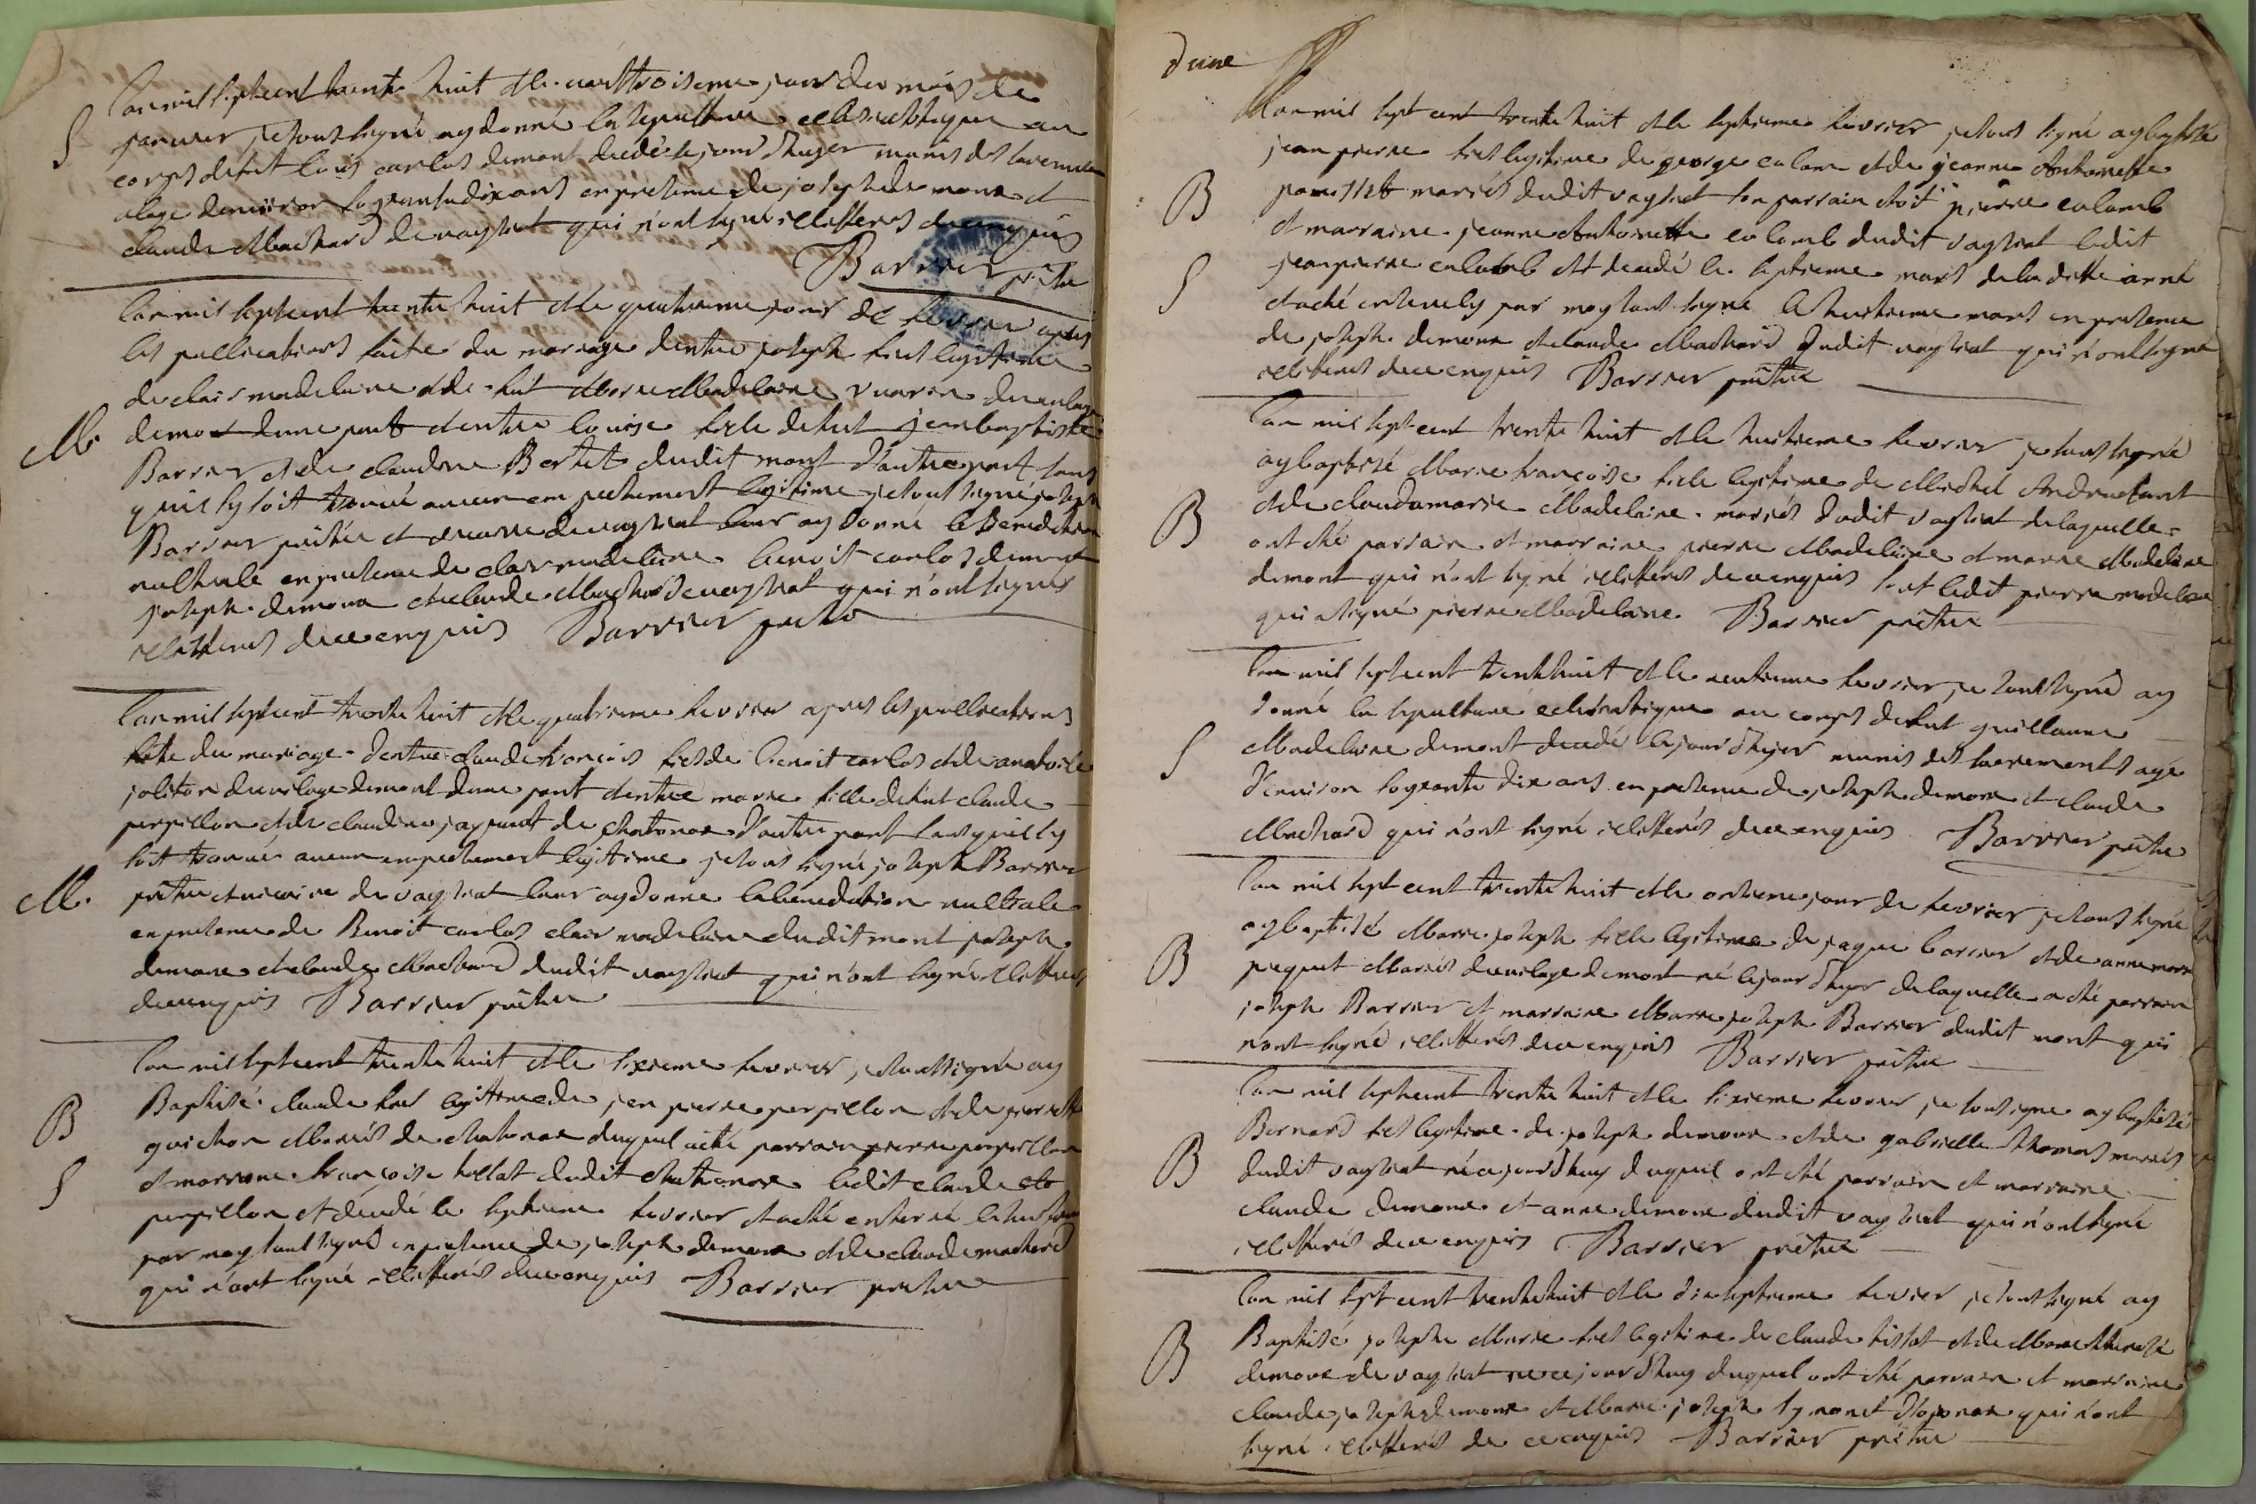 L'an mil sept cent trente huit et le vingt troisieme jour du mois de
S
janvier je sous signé ay donné la sepulture ecclesiastique au
corps de fut Louis carlos demont decedé le jour d'huyer munis des sacremens
alage denviron soixante dix ans en presence de joseph demone et
claude Machard de vaysiat qui n'ont signé illetterés de ce enquis
Barrier prêtre
L'an mil sept cent trente huit et le quatrieme jour de fevrier apres
les publications faite du mariage d'entre joseph fils legitime
de clair madelaine et de fut Marie Madelaine du vilage
M.
demont d'une part et entre louise fille de fut jean baptiste
Barrier et de claudine Bertet dudit mont d'autre part sans
quil sy soit trouvé aucun empechement legitime je sous signé joseph
Barrier prêtre et vicaire de vaysiat leur ay donné la Benediction
nultiale en presence de clair madelaine benoit carlos demont
joseph demone et claude Machard de vaysiat qui n'ont signés
illetterés de ce enquis Barrier prêtre
L'an mil sept cent trente huit et le quatrieme fevrier apres les publications
faite du mariage d'entre claude françois fils de benoit carlos et de
du vilage demont d'une part et entre marie fille de fut claude
perpillon et de claudine de chatonax d'autre part sans quil sy
soit trouvé aucun empechement legitime je sous signé joseph Barrier
M.
prêtre et vicaire de vaysiat leur ay donne la benediction nultiale
en presence de Benoit carlos clair madelaine dudit mont joseph
demone et claude Machard dudit vaysiat qui n'ont signé illetterés
de ce enquis Barrier prêtre
L'an mil sept cent trente huit et le sixieme fevrier je sous signé ay
B
Baptisé claude fils legitime de jean pierre perpillon et de pierrette
guichon Mariés de chatonax duquel a été parrain pierre perpillon
S
et marraine françoise dudit chatonax ledit claude
perpillon et décédé le septieme fevrier et a eté enterré le huitieme
par moy sous signé en presence de joseph demone et de claude machard
qui n'ont signé illetterés de ce enquis Barrier prêtre
d'une
L'an mil sept cent trente huit et le septieme fevrier je sous signé ay baptisé
jean pierre fils legitime de george colomb et de jeanne Antoinette
B
mariés dudit vaysiat son parrain etoit pierre colomb
et marraine jeanne Antoinette colomb dudit vaysiat ledit
S
jean pierre colomb est decedé le septieme mars de la ditte anné
et a été ensevely par moy sous signé le huitieme mars en presence
de joseph demone et claude Machard dudit vaysiat qui n'ont signé
illetterés de ce enquis Barrier prêtre
L'an mil sept cent trente huit et le huitieme fevrier je sous signé
ay baptisé Marie françoise fille legitime de Michel
B
et de claudamarie Madelaine mariés dudit vaysiat de laquelle
ont été parrain et marraine pierre Madelaine et marie Madelaine
demont qui n'ont signé illetterés de ce enquis sauf ledit pierre madelaine
qui a signé pierre Madelaine. Barrier prêtre
L'an mil sept cent trente huit et le neuvieme fevrier je sous signé ay
donné la sepulture eclesiastique au corps de fut guillaume
S
Madelaine demont decedé le jour d'hyer munis des sacrements agé
d'environ soixante dix ans en presence de joseph demone et claude
Machard qui n'ont signé illetterés de ce enquis Barrier prêtre
L'an mil sept cent trente huit et le onzieme jour de fevrier je sous signé
ay baptisé Marie joseph fille legitime de jaque barrier et de anne marie
B
Mariés du vilage demont né le jour d'hyer de laquelle a été parrain
joseph Barrier et marraine Marie joseph Barrier dudit mont qui
n'ont signé illetterés de ce enquis Barrier prêtre
L'an mil sept cent trente huit et le sixieme fevrier je sous signé ay baptisé
Bernard fils legitime de joseph demone et de gabrielle thomas mariés
B
dudit vaysiat né ajourd'huy duquel ont été parrain et marraine
claude demone et anne demone dudit vaysiat qui n'ont signé
illetterés de ce enquis Barrier prêtre
L'an mil sept cent trente huit et le dixseptieme fevrier je sous signé ay
B
Baptisé joseph Marie fils legitime de claude tissot et de Marie therese
demone de vaysiat né ce jourd'huy duquel ont été parrain et marraine
claude joseph demone et Marie joseph qui n'ont
signé illetterés de ce enquis Barrier prêtre